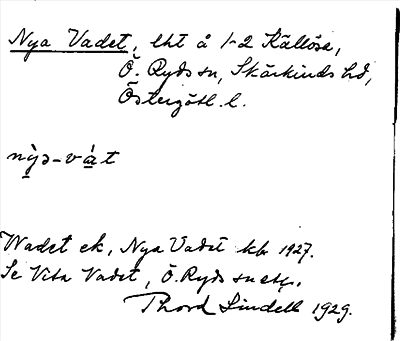 Nya Vadet, lht å 1-2 Källösa,
Ö. Ryds sn, Skärkinds hd,
Östergötl. l.
nỳə-vát
Wadet ek, Nya Vadet kb 1927.
Se Vita Vadet, Ö. Ryds sn etc.
Thord Lindell 1929.